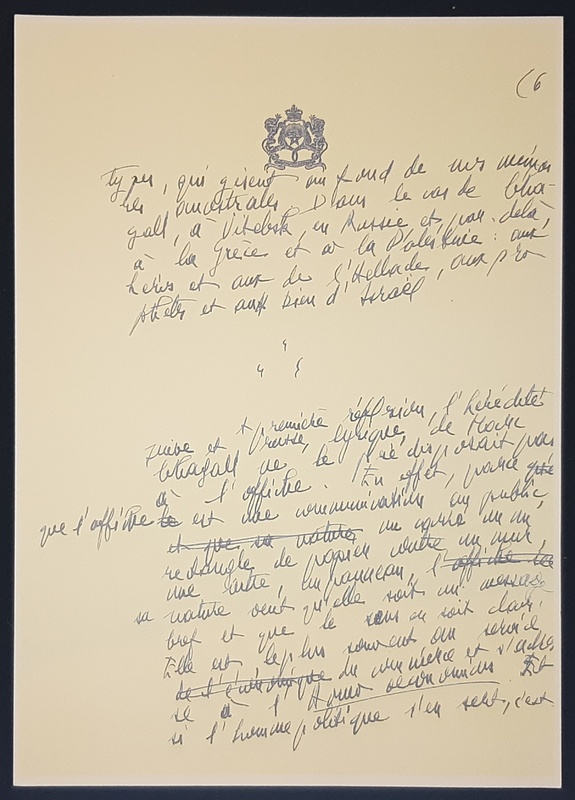 (6
types, qui gisent au fond de nos mémoi
res ancestrales. Dans le cas de Cha-
gall, à Vitebsk, en Russie et, par-delà,
à la Grèce et à la Palestine : aux
héros et aux de l'Hellade, aux pro
phètes et aux bien d'Israël
juive et russe, lyrique, de Marc
A première réflexion, l'hérédité
Chagall ne le prédisposait pas
à l'affiche. En effet, parce que
que l'affiche le est une communication au public,
et que sa nature un carré un un,
rectangle de papier contre un mur,
une autre, un panneau, l'affiche
sa nature veut qu'elle soit un message
bref et que le sens en soit clair.
Elle est le plus souvent au service
de l'économique du commerce et s'adres
se à l'homo oeconomicus. Et
si l'homme politique s'en sert, c'est